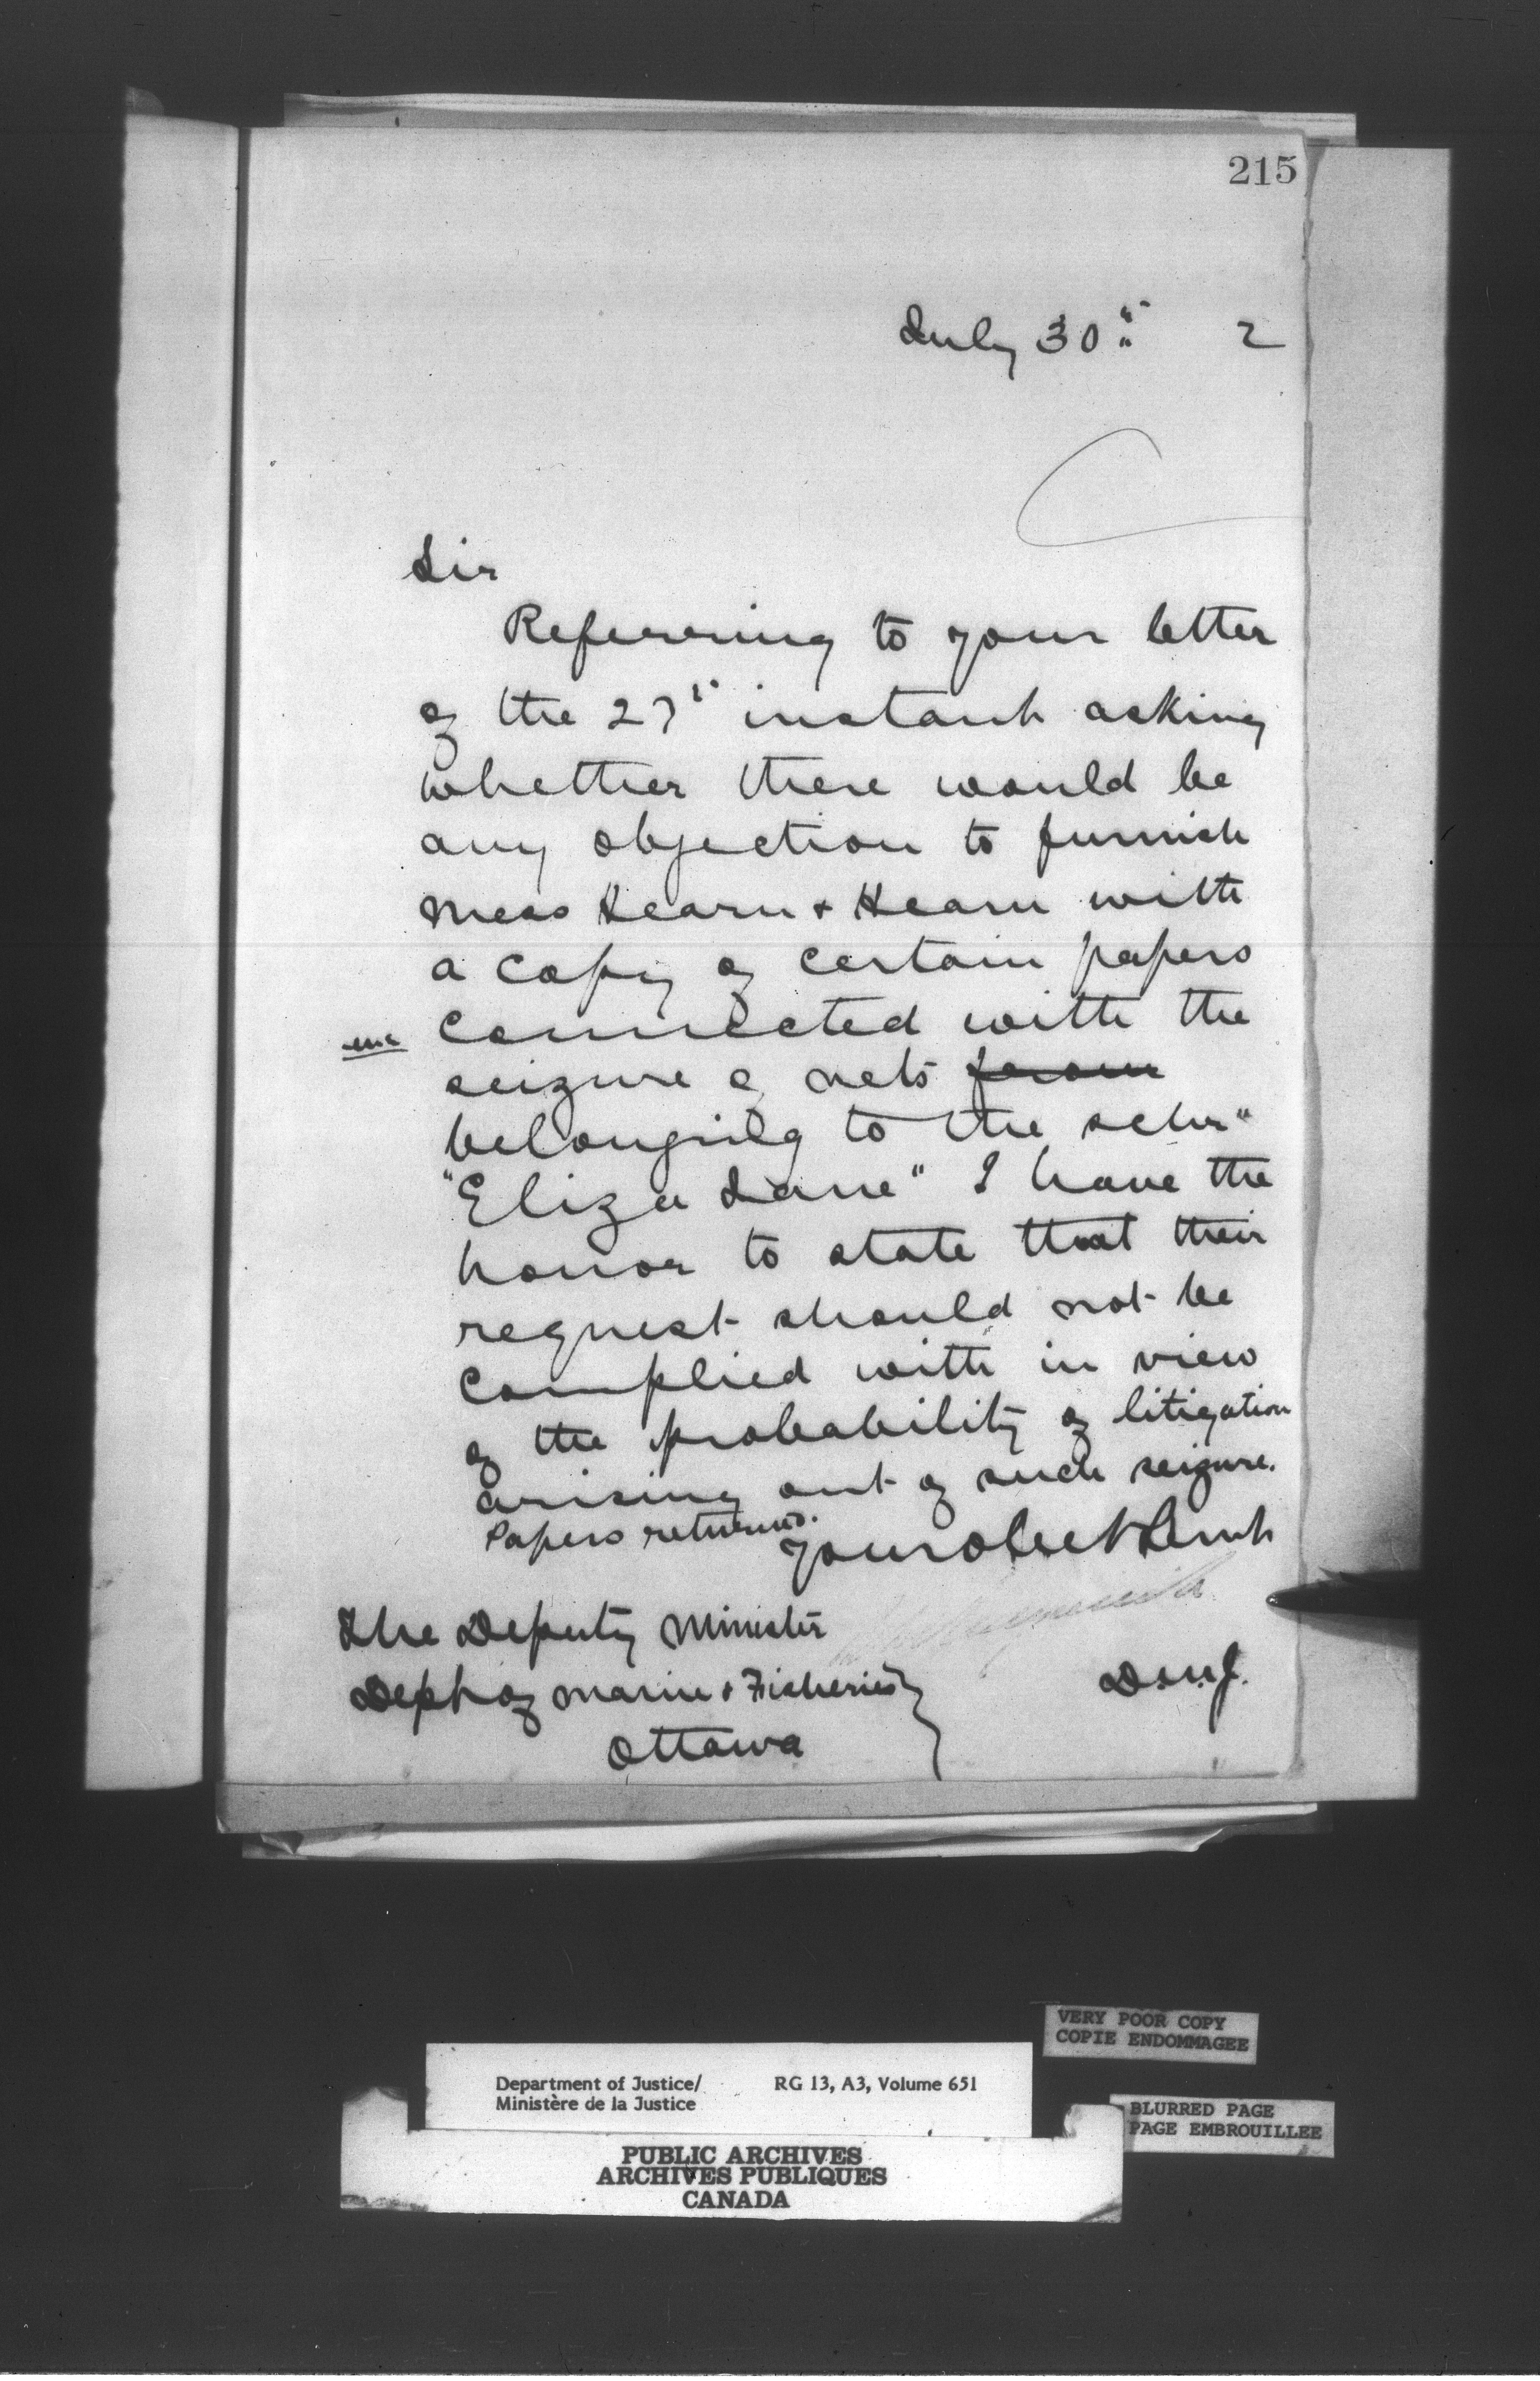 215
July 30" 2
Sir
Referring to your letter
of the 27" instant asking
whether there would be
any objection to furnish
Mess Hearn & Hearn with
a copy of certain papers
connected with the
enc
seizure of nets from
belonging to the schr"
"Eliza Lane" I have the
honor to state that their
request should not be
complied with in view
of the probability of litigation
arising out of such seizure.
Papers returned.
Your obet Servt
The Deputy Minister
Dept of Marine & Fisheries
Ottawa
D.M.J.
VERY POOR COPY
COPIE ENDOMMAGEE
Department of Justice/ RG 13, A3, Volume 651
Ministère de la Justice
BLURRED PAGE
PAGE EMBROUILLEE
PUBLIC ARCHIVES
ARCHIVES PUBLIQUES
CANADA